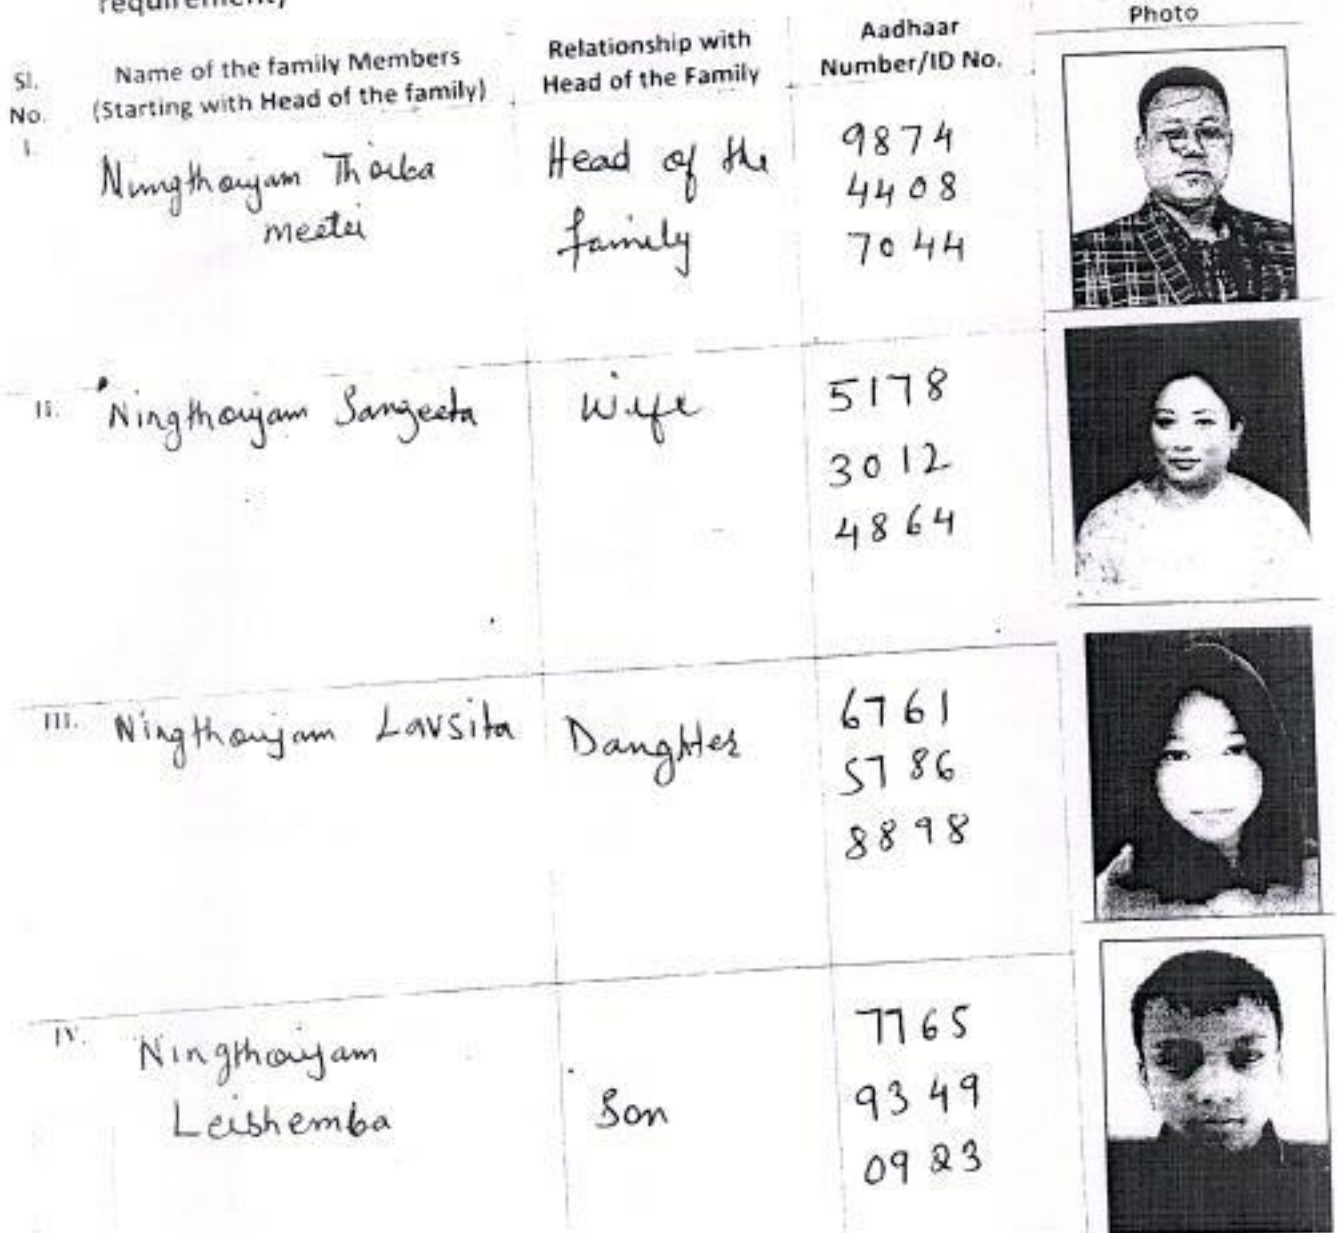 requirement)
Sl. No.
Name of the family Members
(Starting with Head of the family)
Relationship with
Head of the Family
Aadhaar
Number/ID No.
Photo
I.
Ningthoujam Thoiba
meetei
Head of the
family
9874
4408
7044
II.
Ningthoujam Sangeeta
Wife
5178
3012
4864
III.
Ningthoujam Lavsita
Daughter
6761
5786
8898
IV.
Ningthoujam
Leishemba
Son
7765
9349
0923